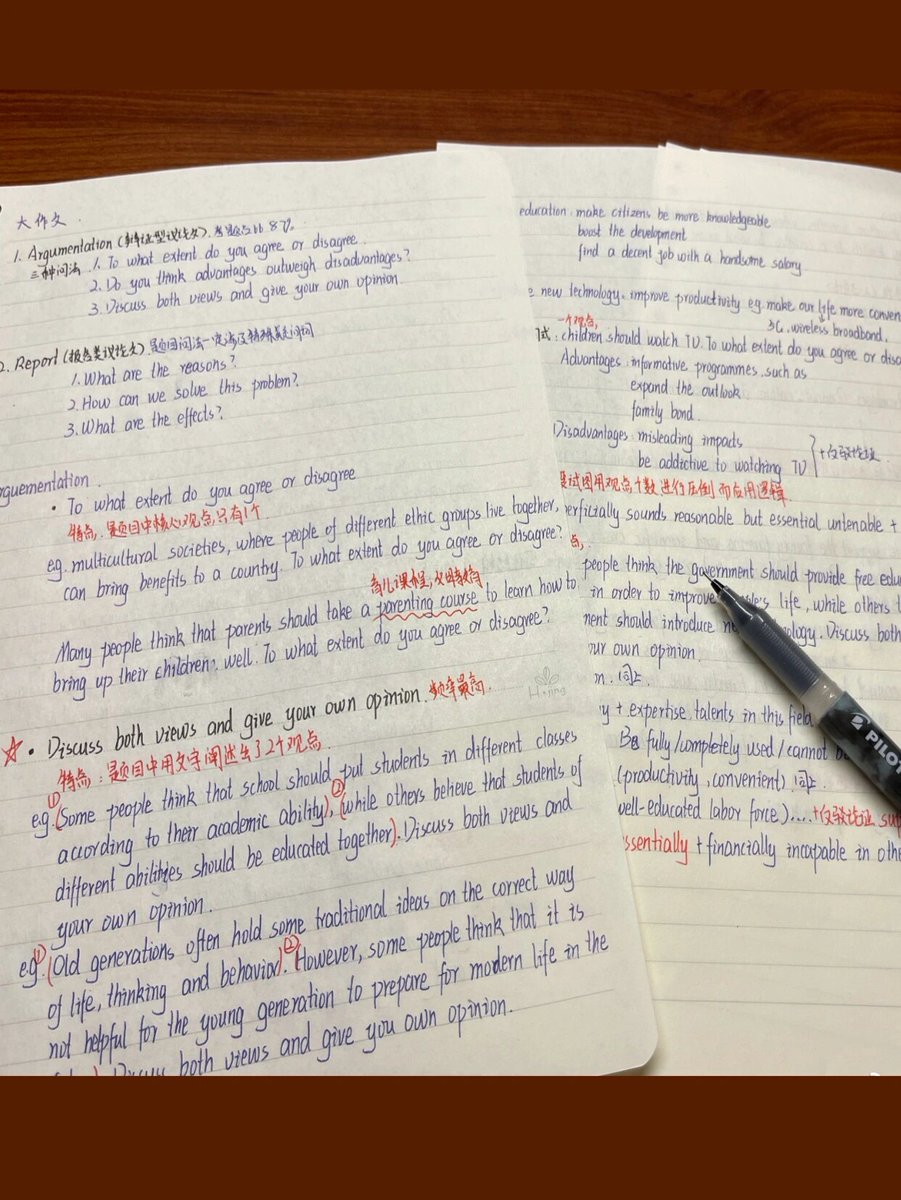 大作文.
1. Argumentation (辩证型议论文). 考题占比 87%
三种问法. 1. To what extent do you agree or disagree.
2. Do you think advantages outweigh disadvantages?
3. Discuss both views and give your own opinion
2. Report (报告类议论文). 题目问法一定涉及特殊疑问词
1. What are the reasons?
2. How can we solve this problem?
3. What are the effects?
rguementation.
• To what extent do you agree or disagree
特点: 题目中核心观点只有1个
eg. multicultural societies, where people of different ethic groups live together,
can bring benefits to a country. To what extent do you agree or disagree?
育儿课程,
Many people think that parents should take a parenting course to learn how to
bring up their children. well. To what extent do you agree or disagree?
☆ • Discuss both views and give your own opinion. 频率最高.
特点: 题目中用文字阐述出了2个观点
① ②
e.g. (Some people think that school should put students in different classes
according to their academic ability), (while others believe that students of
different abilities should be educated together). Discuss both views and
your own opinion.
① ②
e.g. (Old generations often hold some traditional ideas on the correct way
of life, thinking and behavior). (However, some people think that it is
not helpful for the young generation to prepare for modern life in the
both views and give you own opinion.
education. make citizens be more knowledgeable
boost the development
find a decent job with a handsome salary
e new technology. improve productivity eg. make our life more conven
3G. wireless broadband.
一个观点,
式: children should watch TV. To what extent do you agree or disa
Advantages: informative programmes. such as
expand the outlook
family bond.
Disadvantages: misleading impacts
be addictive to watching TV
+反驳论证
试图用观点个数进行压倒而应用逻辑
erficially sounds reasonable but essential untenable +
点,
people think the government should provide free edu
in order to improve life, while others t
ment should introduce Discuss both
ur own opinion.
n. 同上.
y + expertise, talents in this field
Be fully/completely used/cannot
(productivity, convenient) 同上
well-educated labor force)....+反驳论证
ssentially + financially incapable in othe
Hojing
PILOT